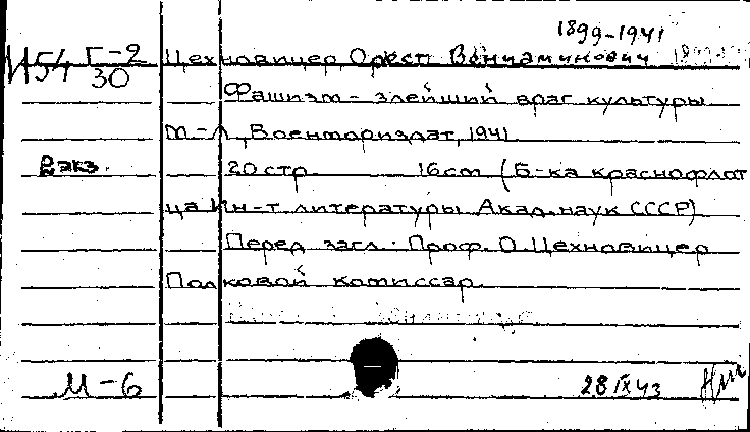 1899-1941
И54 Г-2/30 Цехновицер, Орест Вениаминович
Фашизм - злейший враг культуры
М-Л, Воениориздат, 1941
2 экз. 20 стр. 16 cm (Б-ка краснофлот
ца Ин-т литературы Акад. наук СССР)
Перед загл.: Проф. О. Цехновицер
Полковой комиссар.
М-6 28 IX 43